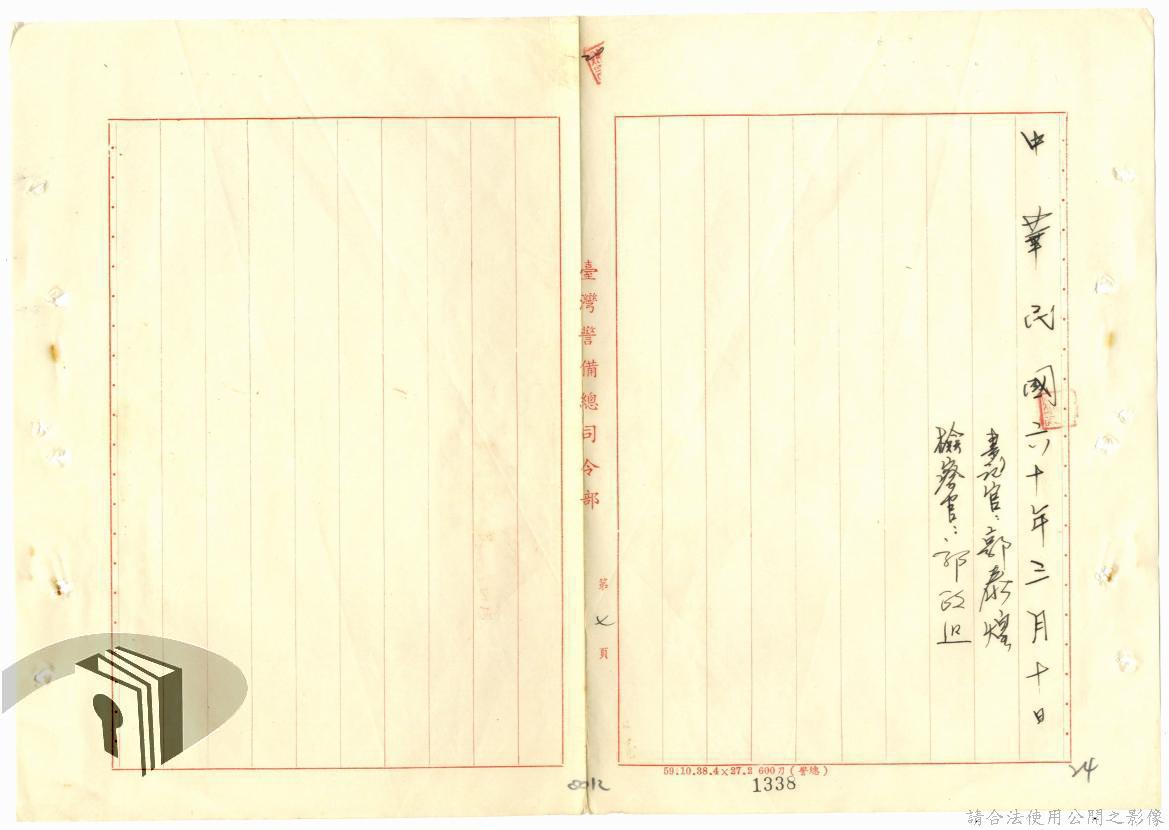 中華民國六十年三月十日
書記官：郭泰煌
檢察官：郭政
臺灣警備總司令部
第七頁
59.10.38.4×27.2 600刀(警總)
1338
24
0012
請合法使用公開之影像